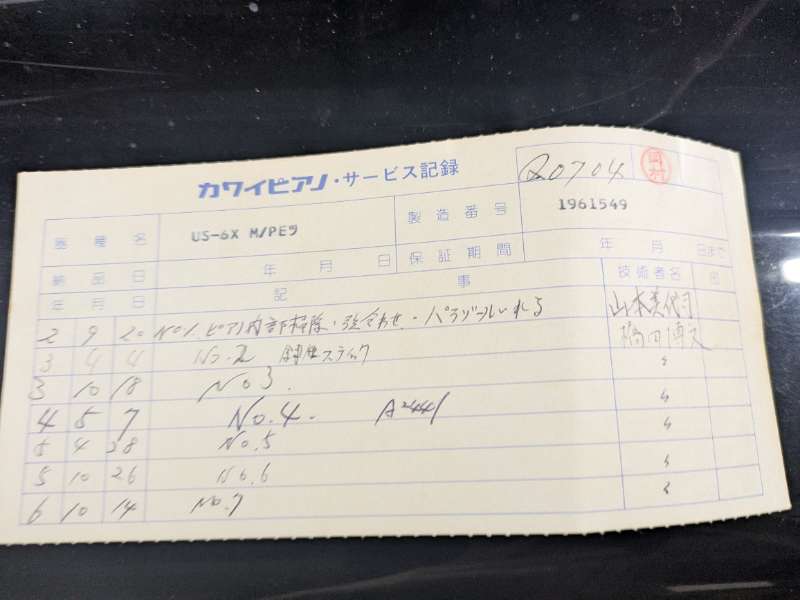 カワイピアノ・サービス記録
Q0704
器種名 US-6X M/PEラ 製造番号 1961549
納品日 年 月 日 保証期間 年 月 日まで
年 月 日 記事 技術者名
2 9 20 No1. ピアノ内部掃除・弦合わせ・パラゾールいれる 山本美代司
3 4 4 No.2 鍵盤スティック 橋田博文
3 10 18 No3. 〃
4 5 7 No.4. A=441 〃
5 4 28 No.5 〃
5 10 26 No.6 〃
6 10 14 No.7 〃